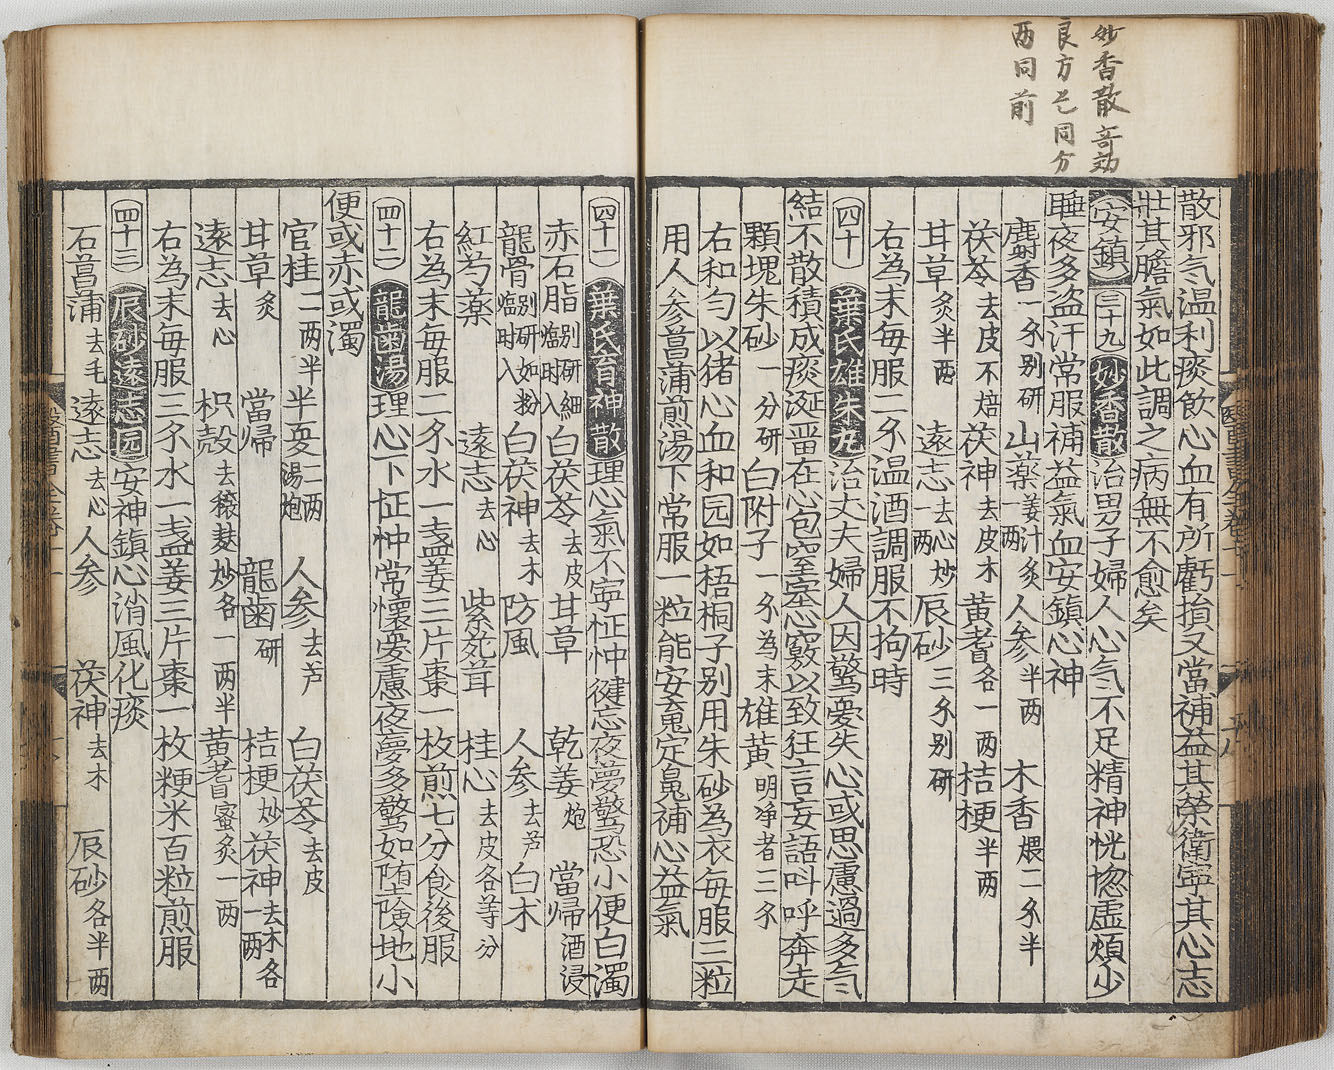 妙香散奇効
良方芒同分
两同前
散邪气温利痰飲心血有所虧損又當補益其榮衛寧其心志
壯其膽氣如此調之病無不愈矣
安鎮 三十九 妙香散 治男子婦人心气不足精神恍惚虚煩少
睡夜多盗汗常服補益氣血安鎮心神
麝香一分别研 山藥姜汁炙一两 人参半两 木香煨二分半
茯苓去皮不焙 茯神去皮木 黄耆各一两 桔梗半两
甘草炙半两 遠志去心炒一两 辰砂三分别研
右為末每服二分温酒調服不拘時
四十 葉氏雄朱丸 治丈夫婦人因驚憂失心或思慮過多气
結不散積成痰涎畱在心包窒塞心竅以致狂言妄語叫呼奔走
顆塊朱砂一分研 白附子一分為末 雄黄明净者三分
右和匀以猪心血和园如梧桐子别用朱砂為衣每服三粒
用人参菖蒲煎湯下常服一粒能安䰟定魄補心益氣
四十一 葉氏育神散 理心氣不寧怔忡健忘夜夢驚恐小便白濁
赤石脂别研細臨时入 白茯苓去皮 甘草 乾姜炮 當帰酒浸
龍骨别研如粉臨时入 白茯神去木 防風 人参去芦 白术
紅芍藥 遠志去心 紫菀茸 桂心去皮各等分
右為末每服二分水一盏姜三片棗一枚煎七分食後服
四十二 龍歯湯 理心下怔忡常懷憂慮夜夢多驚如堕險地小
便或赤或濁
官桂二两半 半夏二两湯炮 人参去芦 白茯苓去皮
甘草炙 當帰 龍歯研 桔梗炒 茯神去木各一两
遠志去心 枳殻去穣麸炒各一两半 黄耆蜜炙一两
右為末每服三分水一盏姜三片棗一枚粳米百粒煎服
四十三 辰砂遠志园 安神鎮心消風化痰
石菖蒲去毛 遠志去心 人参 茯神去木 辰砂各半两